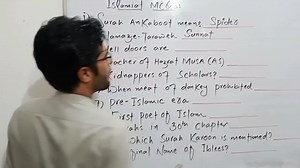 Islamiat MCQ
Surah Ankaboot means Spider
Namaze-Taraweh Sunnat
ell doors are
eacher of Hazrat MUSA (AS)
idnappers of Scholars?
When meat of donkey prohibited
Pre-Islamic era
first poet of Islam
ahs in 30th chapter
which Surah Karoon is mentioned?
ginal Name of Iblees?